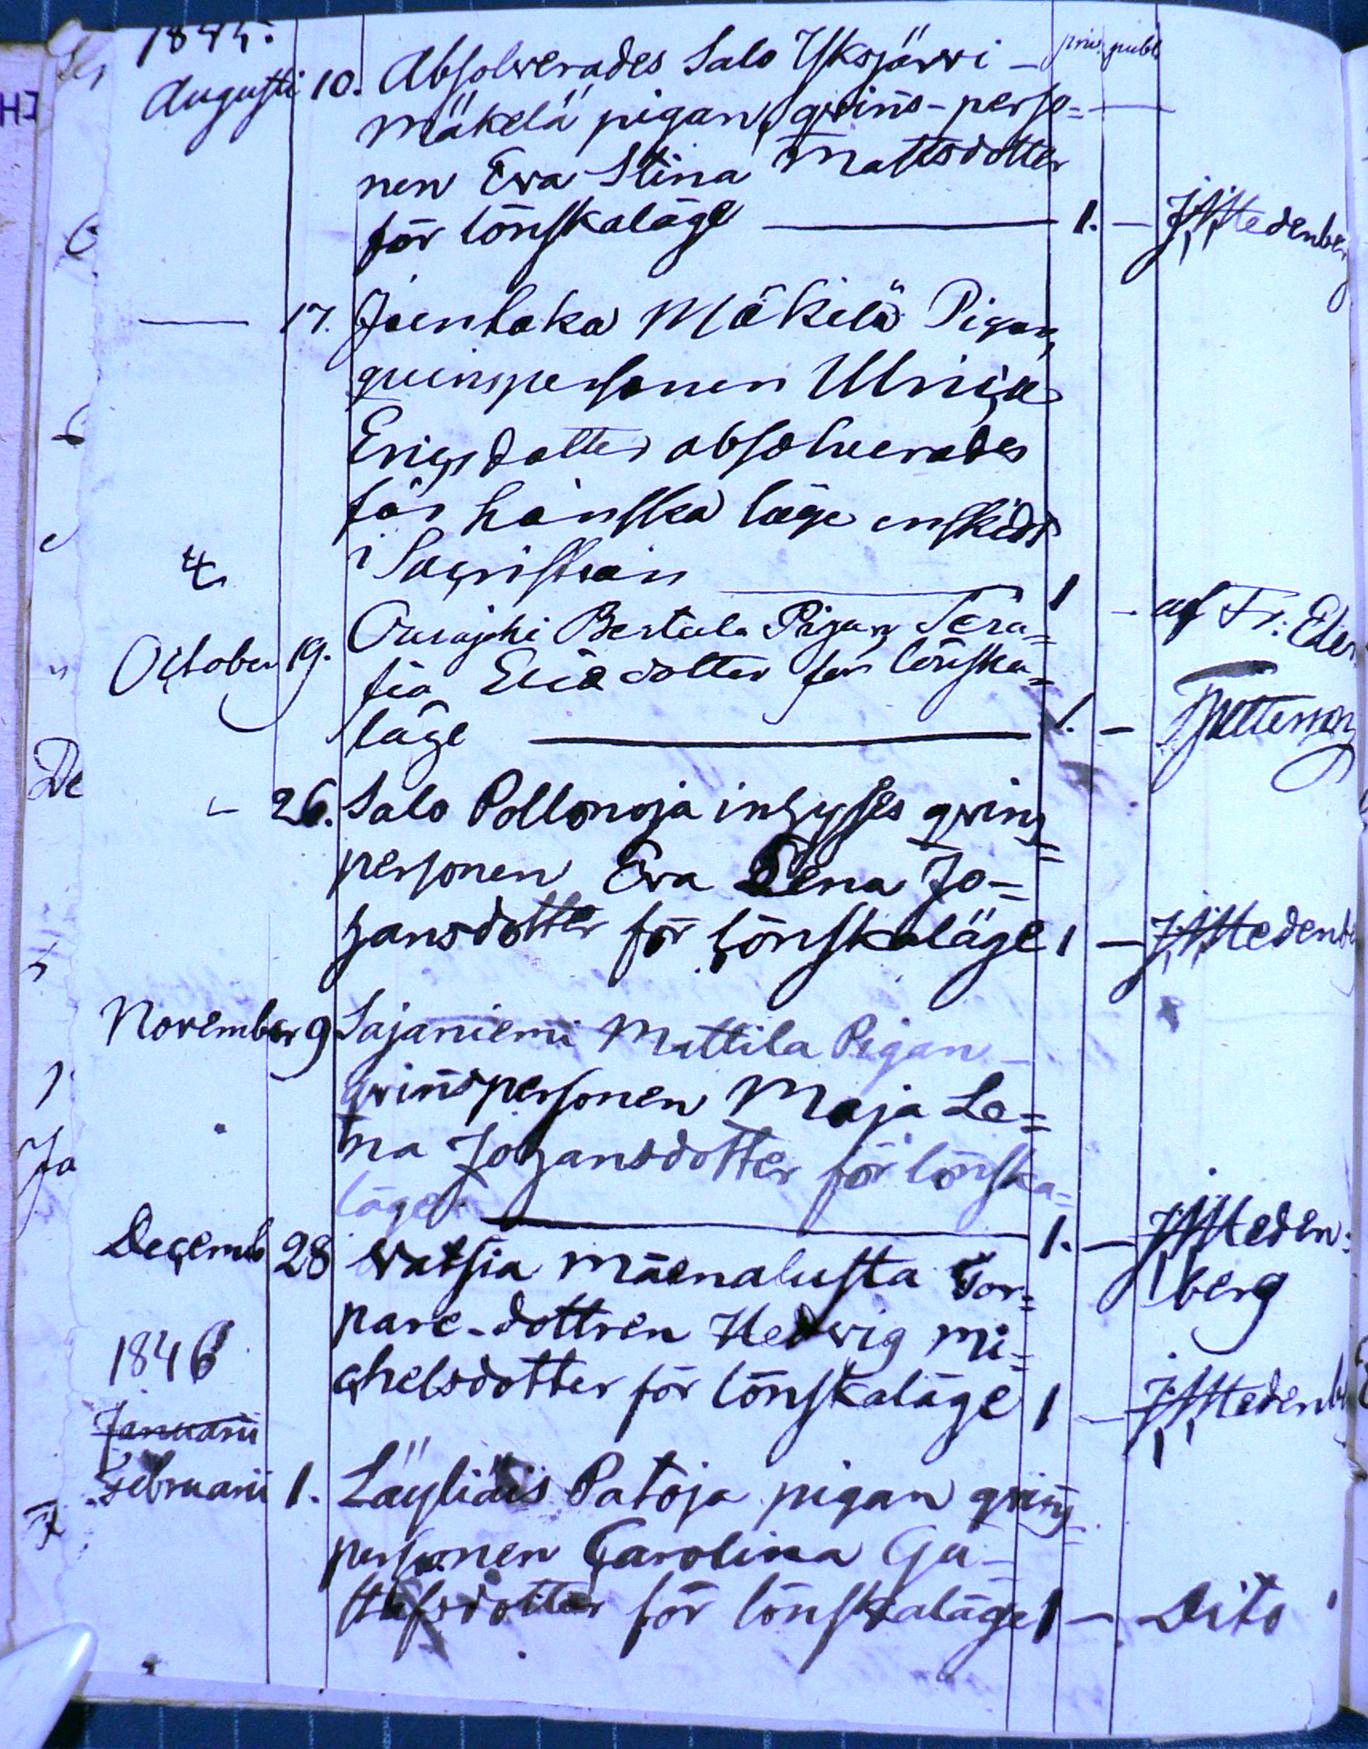 1845. priv. publ.
Augusti 10. Absolverades Salo Yksjärvi -
Mäkelä pigan, qvins-perso=
nen Eva Stina Mattsdotter
för lönskaläge 1. - Stedenberg
17. Joenhaka Mäkilä Pigan,
quinspersonen Ulrica
Ericsdotter absolverades
för lönska läge enskildt
i Sacristian 1 - af Fr: Eden
October 19. Pigan Sera=
fia dotter för lönska=
läge 1. -
- 26. Salo Pollonoja inhyses qvins
personen Eva Lena Jo=
hansdotter för lönskaläge 1 - Stedenb
November 9 Sajaniemi Mattila Pigan
qvinspersonen Maja Le=
na Johansdotter för lönska=
läge. 1. - Steden:
berg
Decemb 28 Watsia Mäenalusta Tor=
pare-dottren Hedvig Mi=
chelsdotter för lönskaläge 1 - Stedenb
1846
Januarii
Februarii 1. Läyliäis Patoja pigan qvins
personen Carolina Gu=
stafsdotter för lönskaläge 1 - Dito